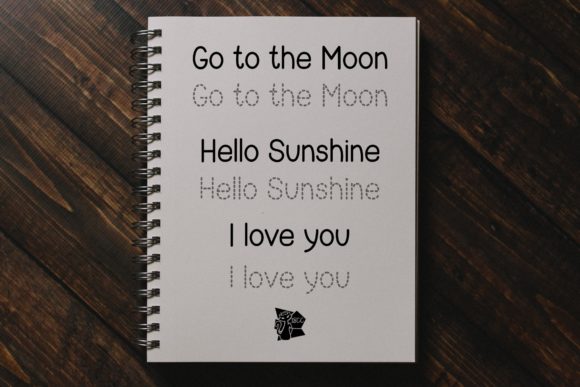 Go to the Moon
Go to the Moon
Hello Sunshine
Hello Sunshine
I love you
I love you